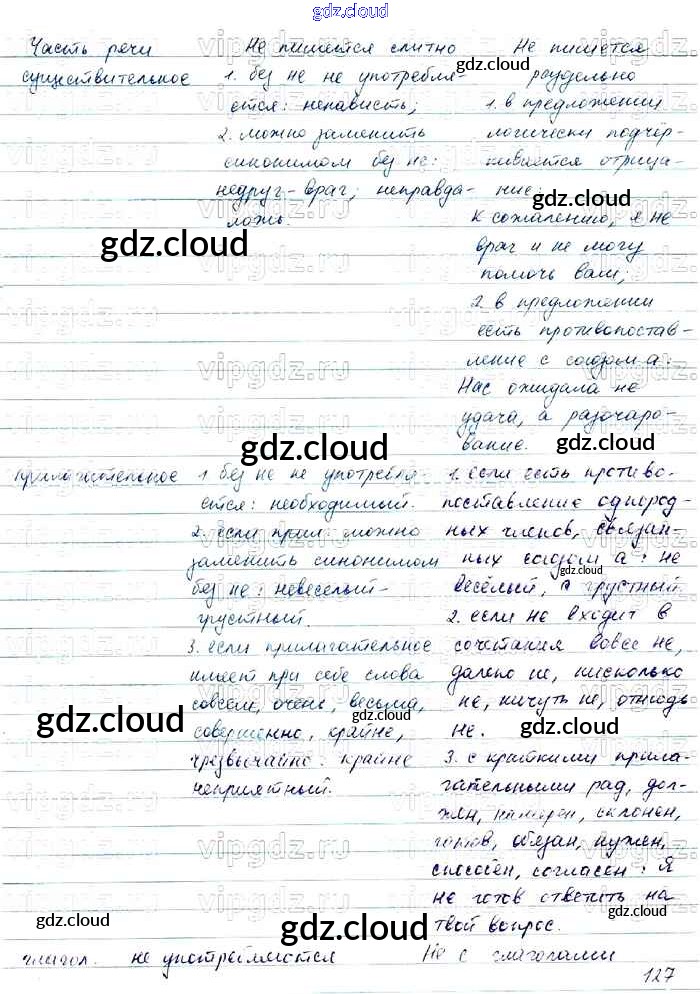 gdz.cloud
Часть речи Не пишется слитно Не пишется
существительное 1. без не не употребля- раздельно
ется: ненависть; 1. в предложении
2. можно заменить логически подчёр-
синонимом без не: кивается отрица-
недруг - враг; неправда- ние:
ложь. к сожалению, я не
враг и не могу
помочь вам;
2. в предложении
есть противопостав-
ление с союзом а:
Нас ожидала не
удача, а разочаро-
вание.
прилагательное 1 без не не употребля- 1. если есть противо-
ется: необходимый. поставление однород-
2. если прил. можно ных членов, связан-
заменить синонимом ных союзом а: не
без не: невеселый- весёлый, а грустный.
грустный. 2. если не входит в
3. если прилагательное сочетания вовсе не,
имеет при себе слова далеко не, нисколько
совсем, очень, весьма, не, ничуть не, отнюдь
совершенно, крайне, не.
чрезвычайно: крайне 3. с краткими прила-
неприятный. гательными рад, дол-
жен, намерен, склонен,
готов, обязан, нужен,
способен, согласен: Я
не готов ответить на
твой вопрос.
глагол. не употребляются Не с глаголами
127
gdz.cloud
gdz.cloud
gdz.cloud
gdz.cloud
gdz.cloud
gdz.cloud
gdz.cloud
gdz.cloud
gdz.cloud
gdz.cloud
gdz.cloud
gdz.cloud
gdz.cloud
vipgdz.ru